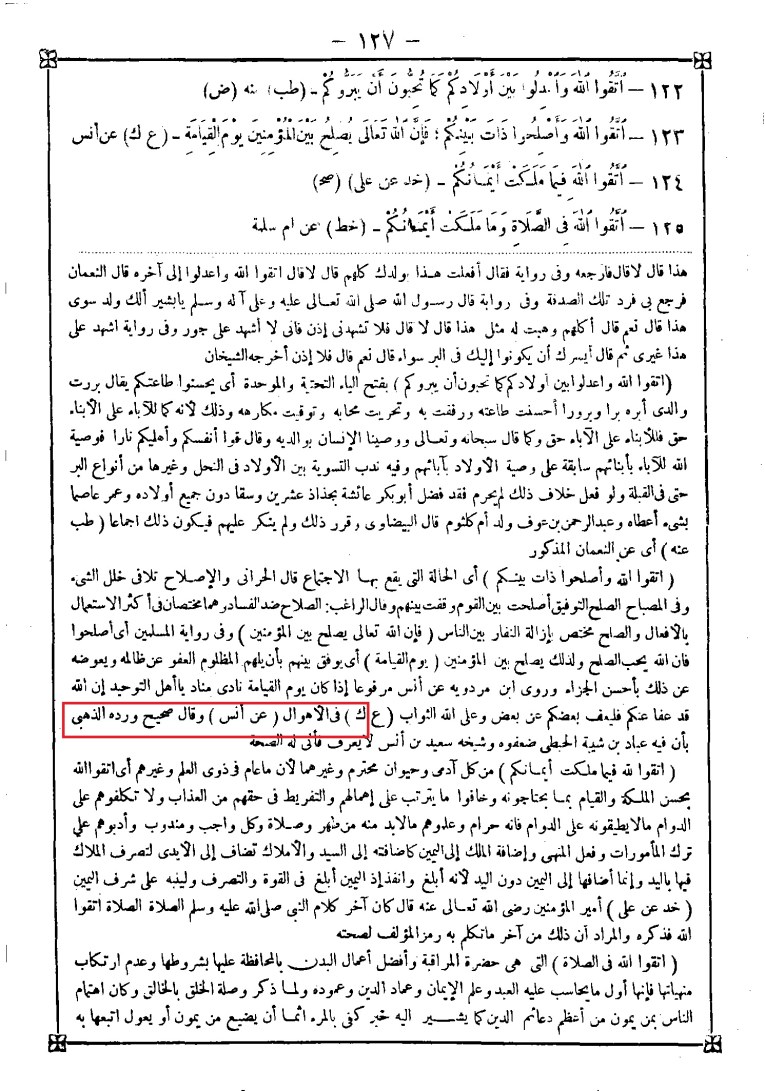 — ١٢٧ —
١٢٢ — ٱتَّقُوا ٱللهَ وَٱعْدِلُوا بَيْنَ أَوْلَادِكُمْ كَمَا تُحِبُّونَ أَنْ يَبَرُّوكُمْ ـ (طب) عنه (ض)
١٢٣ — ٱتَّقُوا ٱللهَ وَأَصْلِحُوا ذَاتَ بَيْنِكُمْ ؛ فَإِنَّ ٱللهَ تَعَالَى يُصْلِحُ بَيْنَ الْمُؤْمِنِينَ يَوْمَ الْقِيَامَةِ ـ (ع ك) عن أنس
١٢٤ — ٱتَّقُوا ٱللهَ فِيمَا مَلَكَتْ أَيْمَانُكُمْ ـ (خد عن على) (صح)
١٢٥ — ٱتَّقُوا ٱللهَ فِى الصَّلَاةِ وَمَا مَلَكَتْ أَيْمَانُكُمْ ـ (خط) عن ام سلمة
هذا قال لا قال فارجعه وفى رواية فقال أفعلت هذا بولدك كلهم قال لا قال اتقوا الله واعدلوا إلى آخره قال النعمان
فرجع بى فرد تلك الصدقة وفى رواية قال رسول الله صلى الله تعالى عليه وعلى آله وسلم يابشير ألك ولد سوى
هذا قال نعم قال أكلهم وهبت له مثل هذا قال لا قال فلا تشهدنى إذن فانى لا أشهد على جور وفى رواية اشهد على
هذا غيرى ثم قال أيسرك أن يكونوا إليك فى البر سواء قال نعم قال فلا إذن أخرجه الشيخان
(اتقوا الله واعدلوا بين أولادكم كما تحبون أن يبروكم) بفتح الياء التحتية والموحدة أى يحسنوا طاعتكم يقال بررت
والدى أبره برا وبرورا أحسنت طاعته ورفقت به وتحريت محابه وتوقيت مكارهه وذلك لأنه كما للآباء على الأبناء
حق فللأبناء على الآباء حق وكما قال سبحانه وتعالى ووصينا الإنسان بوالديه وقال قوا أنفسكم وأهليكم نارا فوصية
الله للآباء بأبنائهم سابقة على وصية الأولاد بآبائهم وفيه ندب التسوية بين الأولاد فى النحل وغيرها من أنواع البر
حتى فى القبلة ولو فعل خلاف ذلك لم يحرم فقد فضل أبوبكر عائشة بجذاذ عشرين وسقا دون جميع أولاده وعمر عاصما
بشىء أعطاه وعبدالرحمن بن عوف ولد أم كلثوم قال البيضاوى وقرر ذلك ولم ينكر عليهم فيكون ذلك اجماعا (طب
عنه) أى عن النعمان المذكور
(اتقوا الله وأصلحوا ذات بينكم) أى الحالة التى يقع بها الاجتماع قال الحرانى والإصلاح تلافى خلل الشىء
وفى المصباح الصلح التوفيق أصلحت بين القوم وفقت بينهم وقال الراغب: الصلاح ضد الفساد وهما مختصان فى أكثر الاستعمال
بالأفعال والصلح مختص بإزالة النفار بين الناس (فإن الله تعالى يصلح بين المؤمنين) وفى رواية المسلمين أى أصلحوا
فان الله يحب الصلح ولذلك يصلح بين المؤمنين (يوم القيامة) أى يوفق بينهم بأن يلهم المظلوم العفو عن ظالمه ويعوضه
عن ذلك بأحسن الجزاء وروى ابن مردويه عن أنس مرفوعا إذا كان يوم القيامة نادى مناد ياأهل التوحيد إن الله
قد عفا عنكم فليعف بعضكم عن بعض وعلى الله الثواب (ع ك) فى الأهوال (عن أنس) وقال صحيح ورده الذهبى
بأن فيه عباد بن شيبة الحبطى ضعفوه وشيخه سعيد بن أنس لا يعرف فأنى له الصحة
(اتقوا الله فيما ملكت أيمانكم) من كل آدمى وحيوان محترم وغيرهما لأن ما عام فى ذوى العلم وغيرهم أى اتقوا الله
بحسن الملكة والقيام بما يحتاجونه وخافوا ما يترتب على إهمالهم والتفريط فى حقهم من العذاب ولا تكلفوهم على
الدوام مالا يطيقونه على الدوام فانه حرام وعلموهم مالابد منه من طهر وصلاة وكل واجب ومندوب وأدبوهم على
ترك المأمورات وفعل المنهى وإضافة الملك إلى اليمين كاضافته إلى السيد والأملاك تضاف إلى الأيدى لتصرف الملاك
فيها باليد وإنما أضافها إلى اليمين دون اليد لأنه أبلغ وانفذ إذ اليمين أبلغ فى القوة والتصرف ولينبه على شرف اليمين
(خد عن على) أمير المؤمنين رضى الله تعالى عنه قال كان آخر كلام النبى صلى الله عليه وسلم الصلاة الصلاة اتقوا
الله فذكره والمراد أن ذلك من آخر ماتكلم به رمز المؤلف لصحته
(اتقوا الله فى الصلاة) التى هى حضرة المراقبة وأفضل أعمال البدن بالمحافظة عليها بشروطها وعدم ارتكاب
منهياتها فإنها أول مايحاسب عليه العبد وعلم الإيمان وعماد الدين وعموده ولما ذكر وصلة الخلق بالخالق وكان اهتمام
الناس بمن يمون من أعظم دعائم الدين كما يشير اليه خبر كفى بالمرء اثما أن يضيع من يمون أو يعول اتبعها به